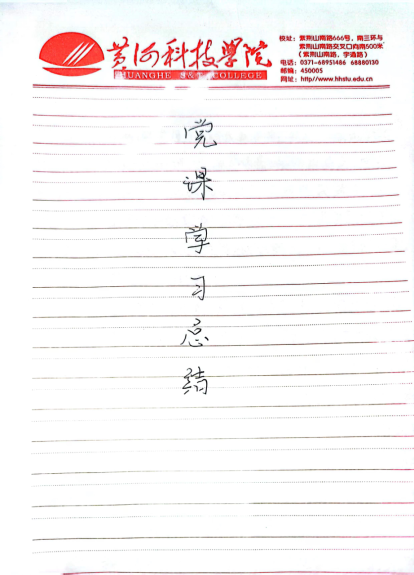 黄河科技学院
HUANGHE S&T COLLEGE
校址：紫荆山南路666号，南三环与
紫荆山南路交叉口向南500米
（紫荆山南路，宇通路）
电话：0371-68951486 68880130
邮编：450005
网址：http//www.hhstu.edu.cn
党
课
学
习
总
结